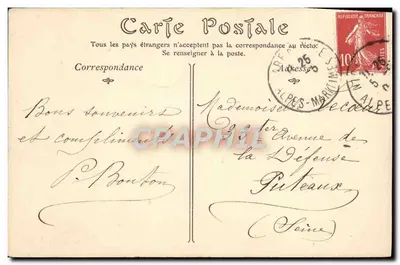 Carte Postale
Tous les pays étrangers n'acceptent pas la correspondance au recto:
Se renseigner à la poste.
Correspondance
Adresse
RÉPUBLIQUE FRANÇAISE
10
25
ALPES-MARITIMES
ALPE
Bons souvenirs
et compliments
P. Bonton
Mademoiselle Decaux
avenue de
la Défense
Puteaux
(Seine)
CPARAMA.COM